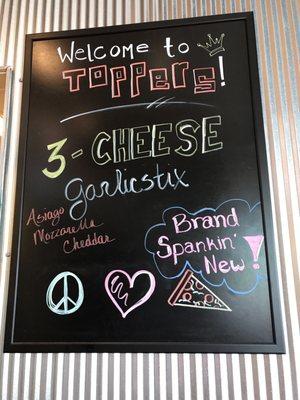 Welcome to
TOPPERS!
3-CHEESE
Garlicstix
Asiago
Mozzarella
Cheddar
Brand
Spankin'
New!